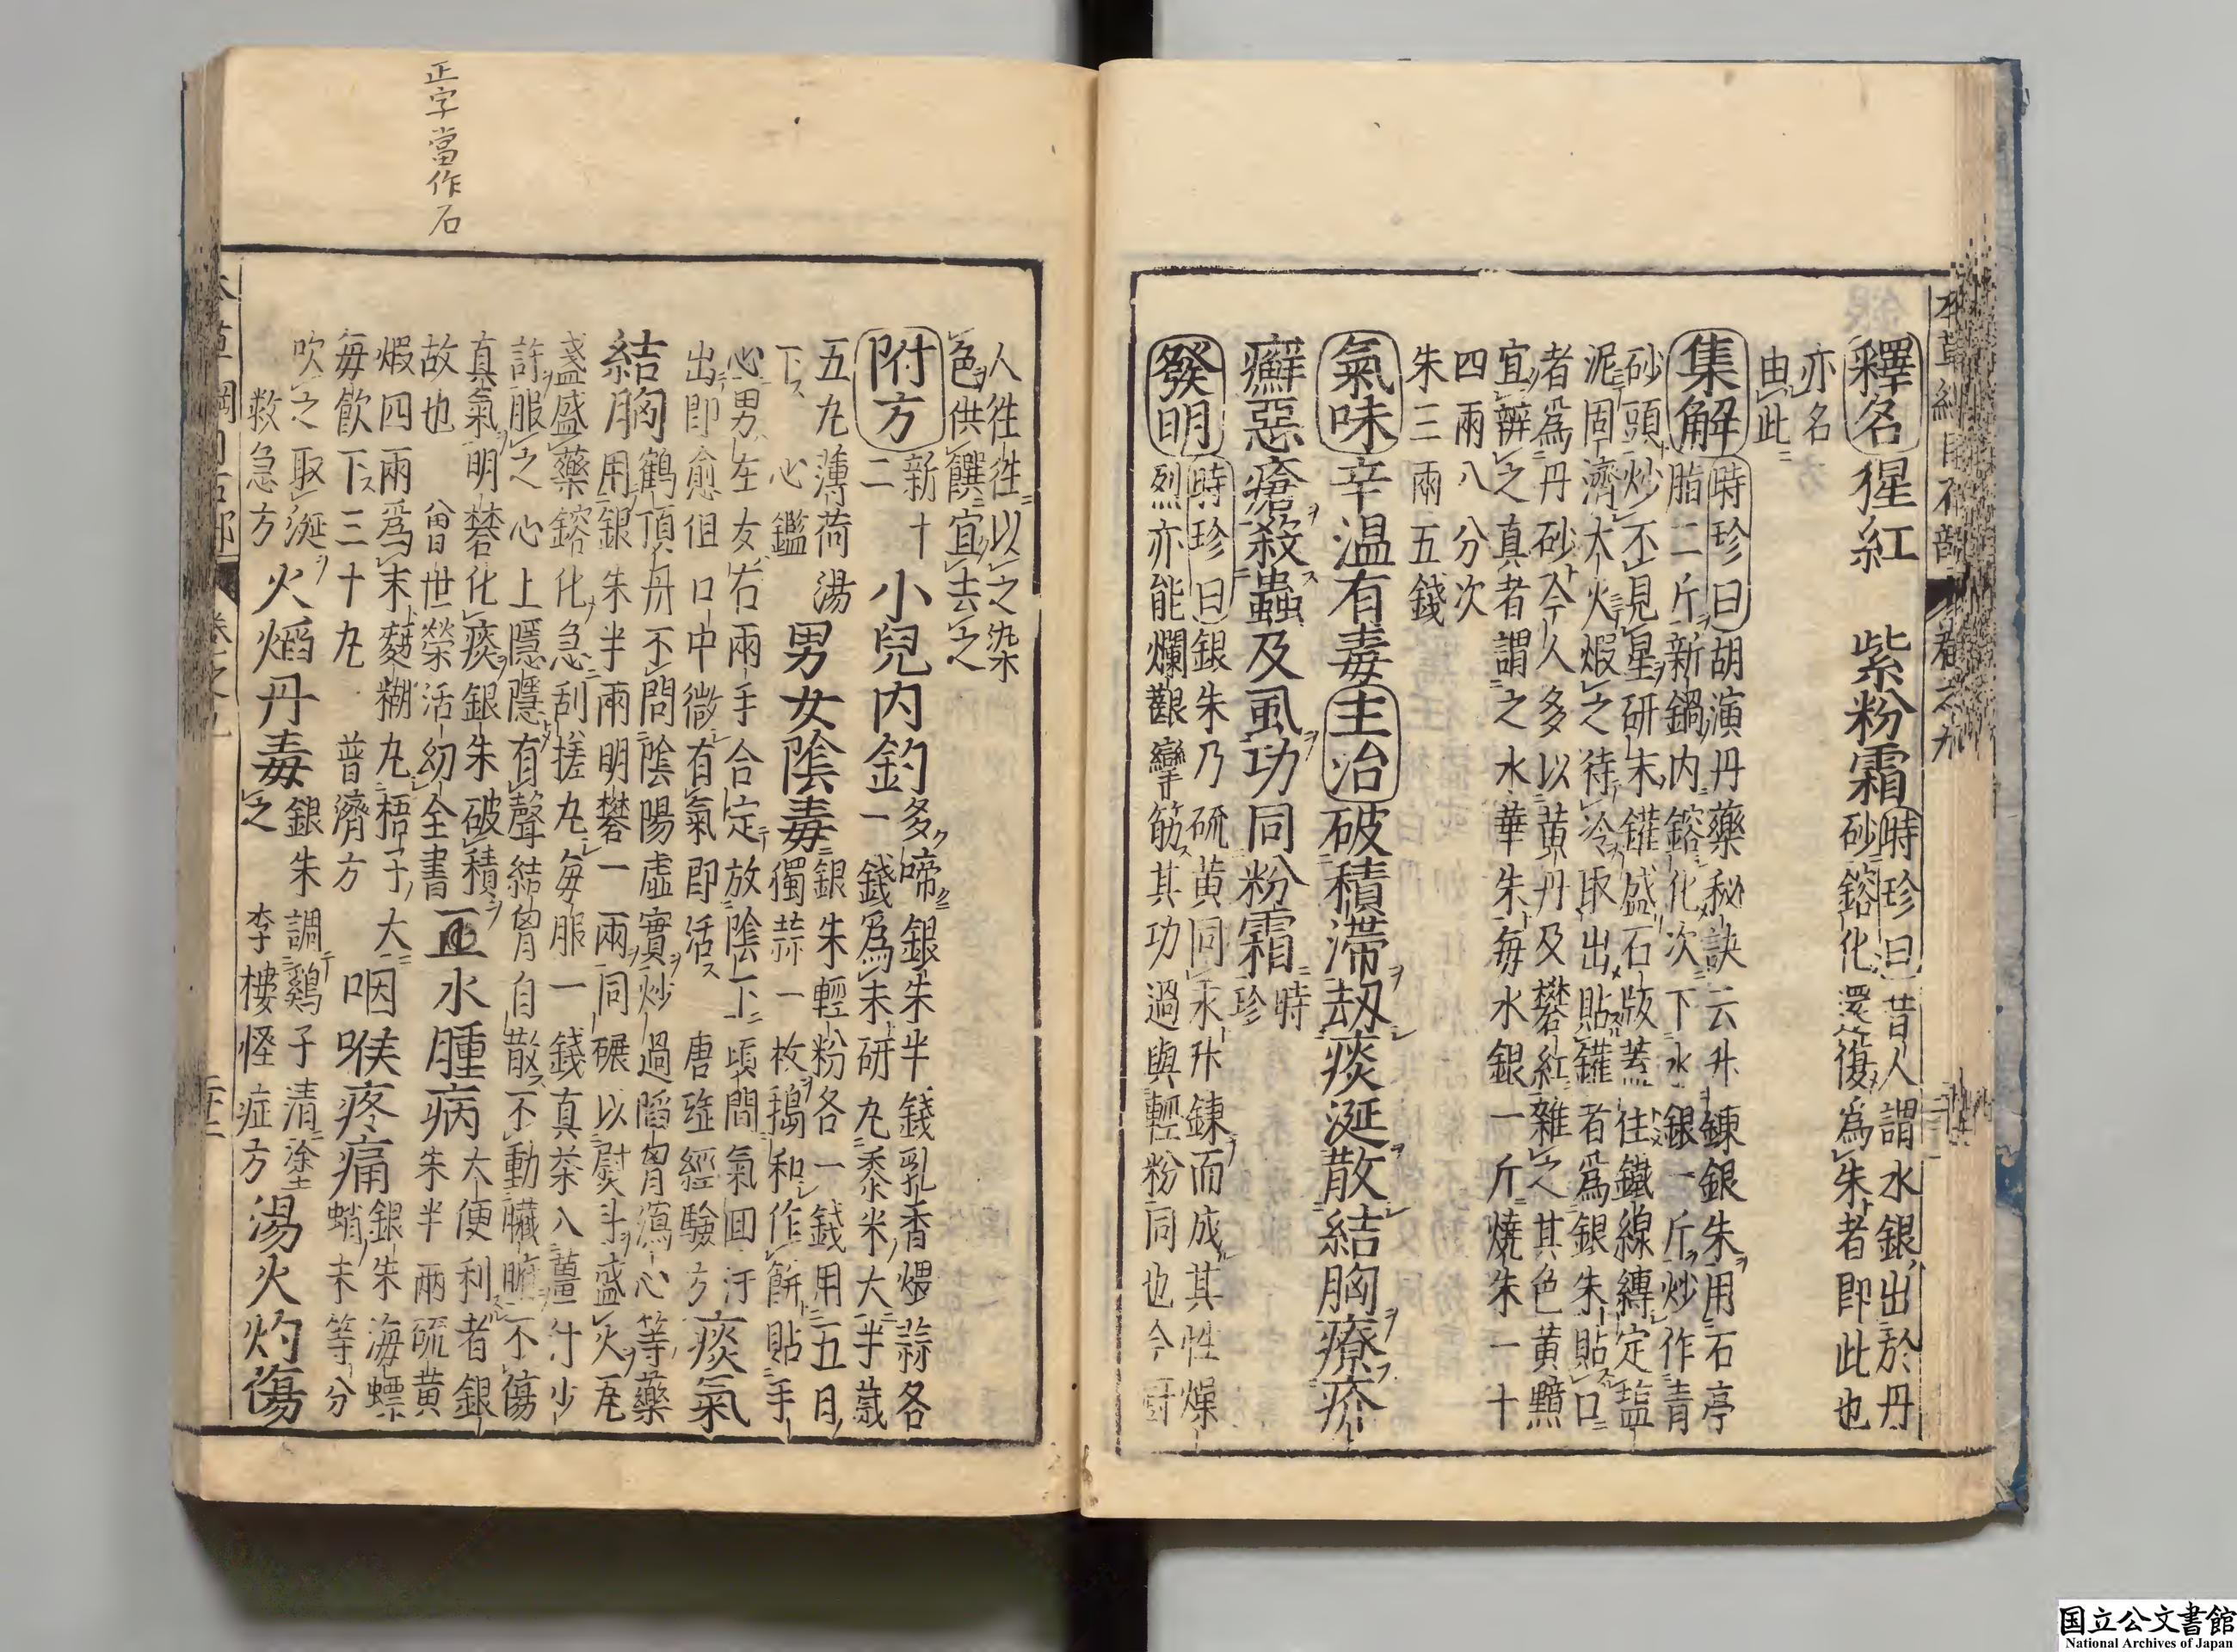 本草綱目石部 卷之九
釋名 猩紅 紫粉霜 時珍曰昔人謂水銀出於丹
砂鎔化還復爲朱者即此也
亦名
由此
集解 時珍曰胡演丹藥秘訣云升鍊銀朱用石亭
脂二斤新鍋内鎔化次下水銀一斤炒作青
砂頭炒不見星研末罐盛石版蓋住鐵線縛定盬
泥固濟大火煅之待冷取出貼罐者爲銀朱貼口
者爲丹砂今人多以黄丹及礬紅雜之其色黄黯
宜辨之真者謂之水華朱每水銀一斤燒朱一十
四兩八分次
朱三兩五錢
氣味 辛温有毒 主治 破積滯劫痰涎散結胸療疥
癬惡瘡殺蟲及虱功同粉霜 時
珍
發明 時珍曰銀朱乃硫黄同汞升鍊而成其性燥
烈亦能爛齦攣筋其功過與輕粉同也今厨
人徃徃以之染
色供饌宜去之
附方 新十
二
小兒内釣 多啼銀朱半錢乳香煨蒜各
一錢爲末研丸黍米大半歲
五丸薄荷湯
下 心鑑
男女陰毒 銀朱輕粉各一錢用五日
獨蒜一枚搗和作餅貼手
心男左女右兩手合定放陰下頃間氣回汗
出即愈但口中微有氣即活 唐瑶經驗方
痰氣
結胸 鶴頂丹不問陰陽虚實炒過陷胷瀉心等藥
用銀朱半兩明礬一兩同碾以熨斗盛火瓦
盞盛藥鎔化急刮搓丸每服一錢真茶入薑汁少
許服之心上隱隱有聲結胷自散不動臟腑不傷
真氣明礬化痰銀朱破積
故也 曾世榮活幼全書
正水腫病 大便利者銀
朱半兩硫黄
煅四兩爲末麪糊丸梧子大
每飲下三十丸 普濟方
咽喉疼痛 銀朱海螵
蛸末等分
吹之取涎
救急方
火焰丹毒 銀朱調鷄子清塗
之 李樓怪症方
湯火灼傷
正字當作石
国立公文書館
National Archives of Japan